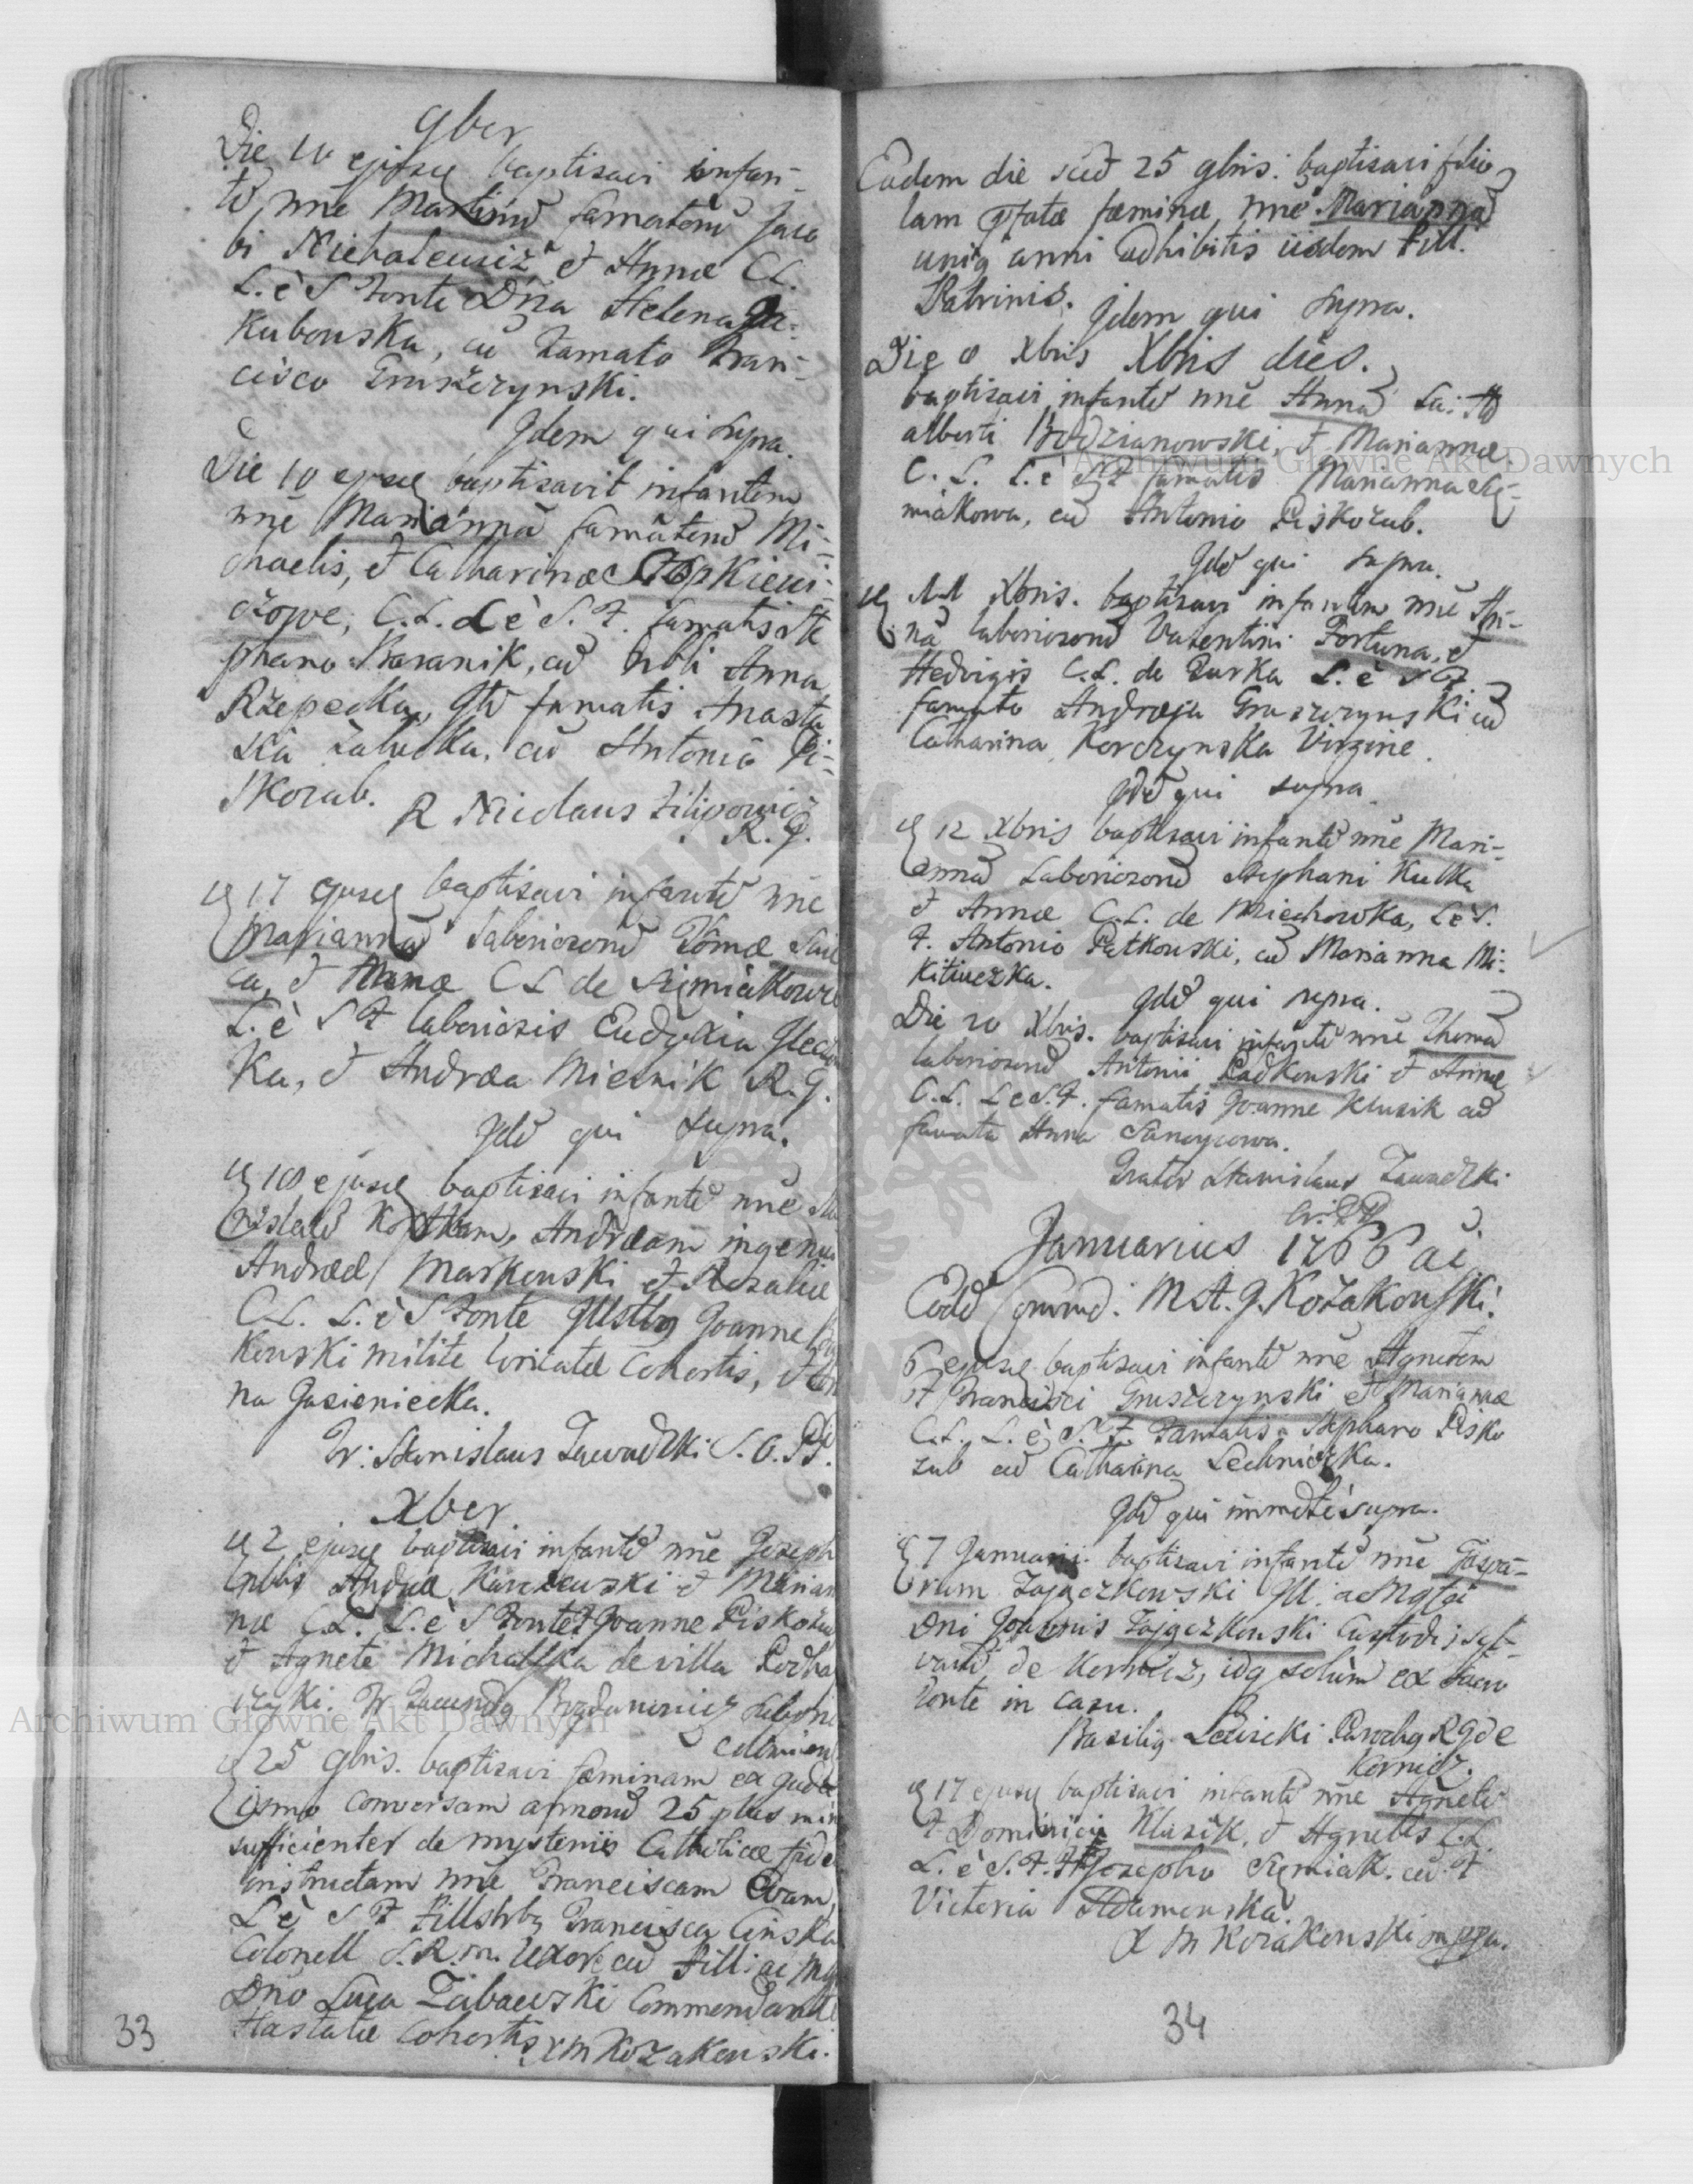 9ber
Die 10 ejusd baptisavi infan-
tē nne Martinū famatorū Jaco
bi Michalewicz et Annæ CL.
L. è S Fonte Dña Helena Ja-
kubowska, cū Famato Fran-
cisco Gruszczynski.
Idem qui supra.
Die 10 ejusd baptisavit infantem
nne Mariannā famatorū Mi-
chaelis, et Catharinæ
czowe, C.L. L è S. F. famatis Ste
phano Baranik, cū Nbli Anna
Rzepecka, Itē famatis Anasta
sia Zaluska, cū Antonio Pi-
skozub.
R Nicolaus Filipowicz
R. G.
17 ejusd baptisavi infantē nne
Mariannā Laboriosorū Tomæ
et Annæ C L de Siemiakowce
L. è S F laboriosis Eudoxia
ka, et Andrea Miernik R. G.
Idē qui supra.
18 ejusd baptisavi infantē nne
Kostkam, Andream
Andreæ Markowski et Rosaliæ
C L. L. è S Fonte Joanne
kowski milite loricatæ Cohortis, et
na Gasieniecka.
Fr: Stanislaus Zawadzki S. O. PP.
Xber
2 ejusd baptisavi infantē nne Joseph
Andreæ et Marian
næ C.L. L. è S Fonte Joanne Piskozub
et Agnete Michalska de villa Podha
iczyki. Bogdanowicz
25 9bris. baptisavi fæminam ex Juda
ismo conversam annorū 25 plus min
sufficienter de mysteriis Catholicæ fidei
instructam nne Franciscam Evam,
L è S F Francisca Cinska
Colonell S. R. m. Uxore cū
Dno Luca Zabawski Commendante
Hastatæ Cohortis X M Kozakowski.
33
Eadem die 25 9bris. baptisavi filio
lam pfatæ fæminæ, nne Mariannā
uniq anni adhibitis iisdem
Patrinis. Idem qui supra.
Die 8 Xbris Xbris dies.
baptisavi infantē nne Annā
alberti Bodzianowski, et Mariannæ
C. L. L. è S F famatis Marianna Sie-
miakowa, cū Antonio Piskozub.
Idē qui supra.
11 Xbris. baptisavi infantem nne An-
nā laboriosorū Valentini Fortuna, et
Hedvigis C.L. de Burka L. è S F
famato Andrea Gruszczynski cū
Catharina Korczynska Virgine.
Idē qui supra
12 Xbris baptisavi infantē nne Mari-
annā Laboriosorū Stephani Kulka
et Annæ C.L. de Miechowka, L è S.
F. Antonio Patkowski, cū Marianna Mi-
kitiuczka.
Idē qui supra.
Die 20 Xbris. baptisavi infantē nne Thomā
laboriosorū Antonii Padkowski et Annæ
C. L. L e S. F. famatis Joanne Klusik cū
famata Anna
Frater Stanislaus Zawadzki
Januarius 1766 ai
M A. J. Kozakowski.
6 ejusd baptisavi infantē nne Agnetem
F Francisci Gruszczynski et Mariannæ
C.L. L. è S. F. Famatis Stephano Pisko
zub cū Catharina Lechnicka.
Idē qui immdtè supra.
7 Januarii. baptisavi infantē nne Gaspa-
rum Zajączkowski Ill. ac
Dni Joannis Zajączkowski
de Kornicz, idq solùm ex
fonte in casu.
Basiliq Parochq R G de
Kornicz.
17 ejusd baptisavi infantē nne Agnetē
F Dominici Klusik, et Agnetis C.L.
L. è S. F. Josepho Siemiak. cū F
Victoria Adamowska.
X M Kozakowski mppa.
34
Archiwum Główne Akt Dawnych
Archiwum Główne Akt Dawnych